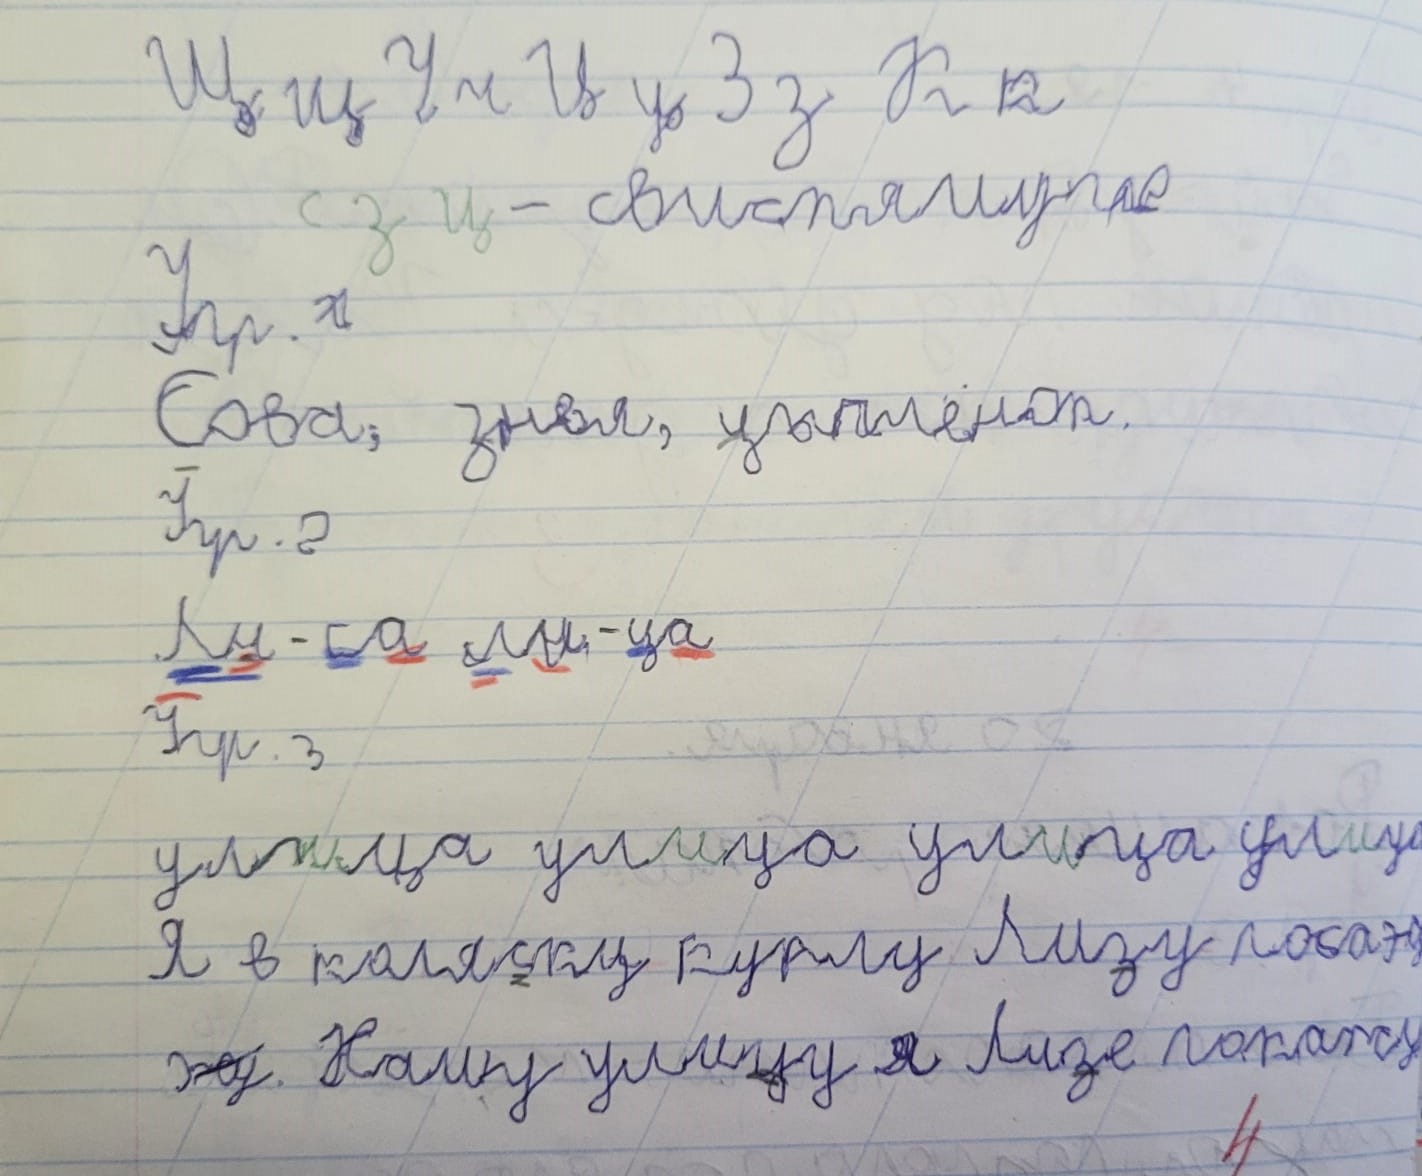 Щ щ Ч ч Ц ц З з К к
с з ц – свистящие
Упр. 1
Сова, змея, цыплёнок.
Упр. 2
Ли-са ли-ца
Упр. 3
улица улица улица улица
Я в коляску куклу Лизу посажу
жу. Нашу улицу я Лизе покажу
4